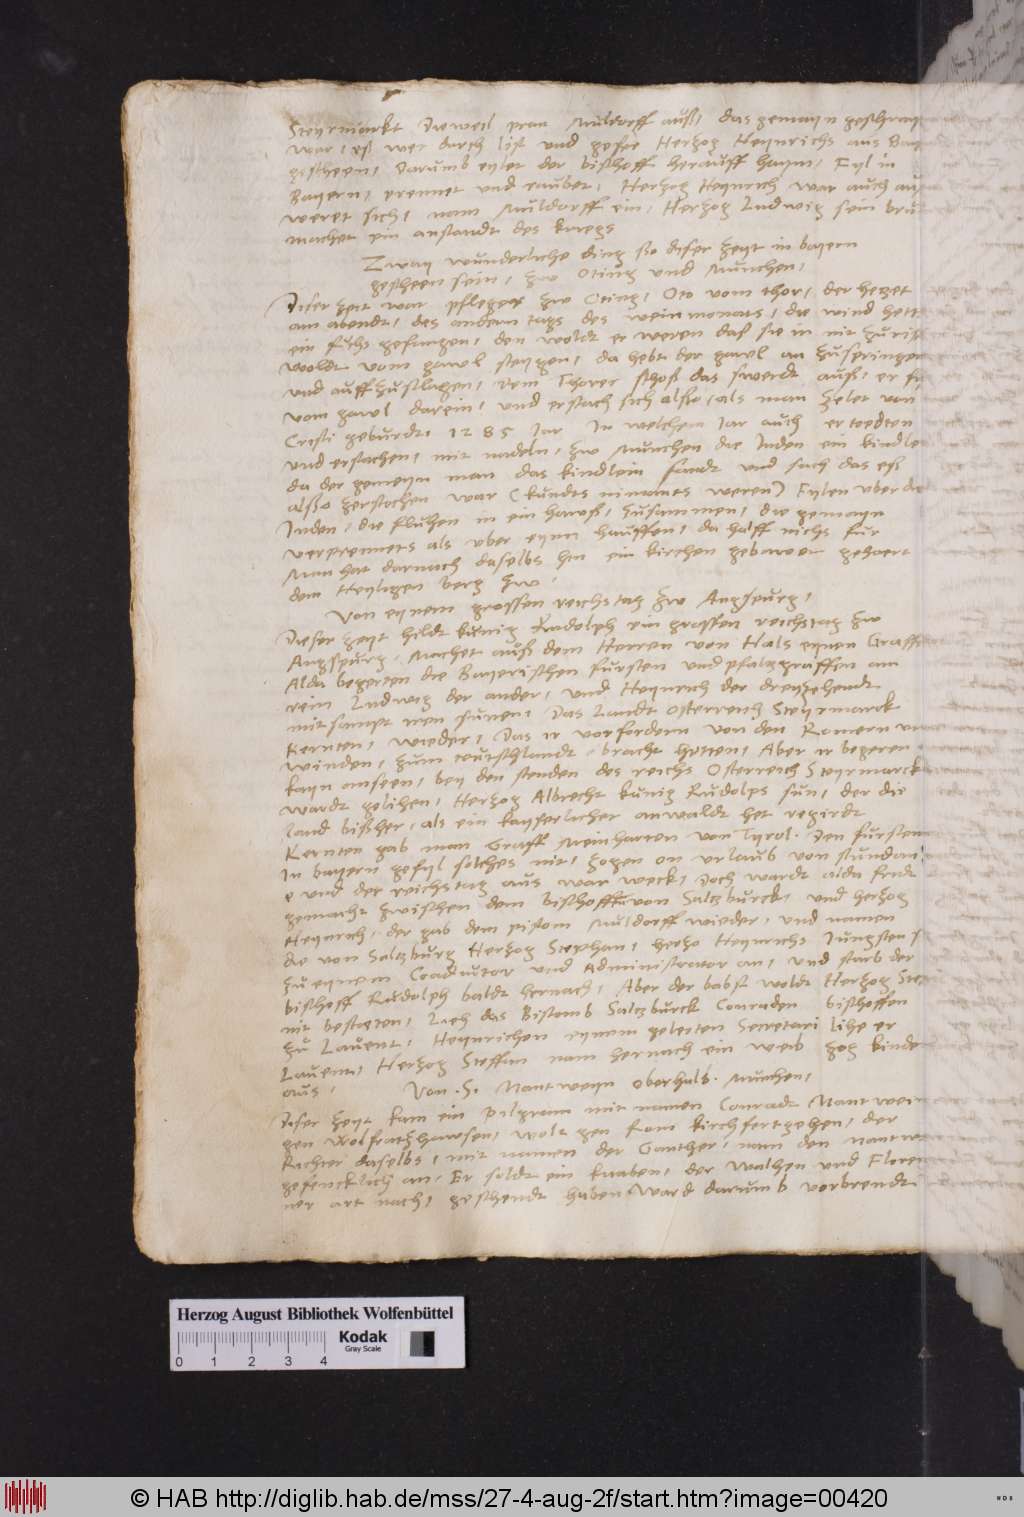 Steyrmarkt Dieweil pran Muldorff auß, das gemayn geschray
war, eß wer durch list und gescho Hertzog Heynrichs aus Bay
gescheen, Darumb eylet der bischoff herauff haym, Fyl in
Bayern, prennet und raubet, Hertzog Heynrich war auch auf
weret sich, nam Muldorff ein, Hertzog Ludwig sein brud
machet ein anstandt des kriegs
Zway wunderliche ding sso diser zeyt in bayern
gescheen sein, zw Oting und Munchen,
Diser zeit war pfleger zw Oting, Oto vom thor, der hetzet
am abendt, des andern tags des weinmonats, die wind hett
ein fuchs gefangen, den woldt er weren das sie in nit zuriss
woldt vom gawl steygen, da hebt der gawl an zuspringen
und auffzuslagen, dem Thorer schoß das swerdt auß, er fi
vom gawl darein, und erstach sich alßo, als man zelet von
Cristi geburdt 1285 Jar In welchem Jar auch ertoedten
und erstachen, mit nadeln, zw Munchen die Juden ein kindle
da der gemeyn man das kindlein fandt und sach das eß
alßo zerstochen war (kundts nimants weren) Fylen uber die
Juden, die fluhen in ein hawß, zusammen, die gemayn
verprennets als uber eynn hauffen, da halff nichs fur
Man hat darnach daselbs hin ein kirchen gebawet gehoert
dem Heyligen berg zw.
Von eynem grossen reichstag zw Augspurg,
Dieser zeyt hildt kunig Rudolph ein grossen reichstag zw
Augspurg, Machet auß dem Herren von Hals eynen Graffe
Alda begerten die Bayerischen fursten und pfaltzgraffen am
rein Ludwig der ander, und Heynrich der dreyzehendt
mitsampt iren sunen, Das Landt Osterreich Steyrmarck
Kernten, wieder, Das ir vorfordern von den Romern un
winden, zum teutschlandt, bracht hetten, Aber ir begeren
kayn anseen, bey den stenden des reichs Osterreich Steyrmarck
wardt gelihen, Hertzog Albrecht kunig Rudolps sun, der die
land bißher, als ein kayserlicher anwaldt het regirdt
Kernten gab man Graff Meinharten von Tyrol. Den fursten
In bayern gefyl solches nit, zogen on urlaub von stundan
e und der reichstag aus war weck, Doch wardt alda fridt
gemacht zwischen dem bischoffen von Saltzburck, und hertzog
Heynrich, der gab dem pistom Muldorff wieder, und namen
die von Saltzburg Hertzog Stephan, hertzo Heynrichs Jungsten s
zu eynem Coadiutor und Administrator an, und starb der
bischoff Rudolph baldt hernach, Aber der babst woldt Hertzog Ste
nit bestoeten, Lieh das Bistomb Saltzburck Conraden bischoffen
zu Lavent, Heynrichen eynem gelerten Secretari lihe er
Lavent, Hertzog Steffan nam hernach ein weib zog kinde
aus, Von .S. Nantweyn oberhalb. Munchen,
Diser zeyt kam ein pilgram mit namen Conradt Nantwein
gen Wolfratzhawsen, wolt gen Rom kirchfert gehen, der
Richter daselbs, mit namen der Ganther, nam den nantw
gefencklich an, Er soldt ein knaben, der walhen und Floren
ner art nach, geschendt haben Ward darumb vorbrendt
Herzog August Bibliothek Wolfenbüttel
0 1 2 3 4
Kodak
Gray Scale
© HAB http://diglib.hab.de/mss/27-4-aug-2f/start.htm?image=00420